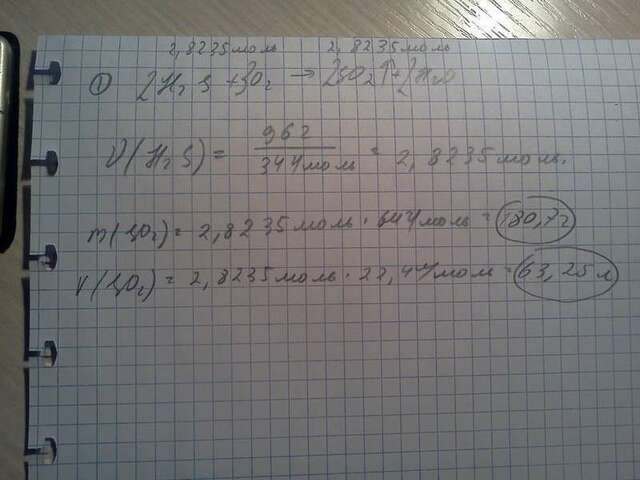 2,8235 моль 2,8235 моль
① 2H₂S + 3O₂ → 2SO₂↑ + 2H₂O
ν(H₂S) = 96г / 34г/моль = 2,8235 моль.
m(SO₂) = 2,8235 моль · 64г/моль = 180,7г
V(SO₂) = 2,8235 моль · 22,4л/моль = 63,25 л